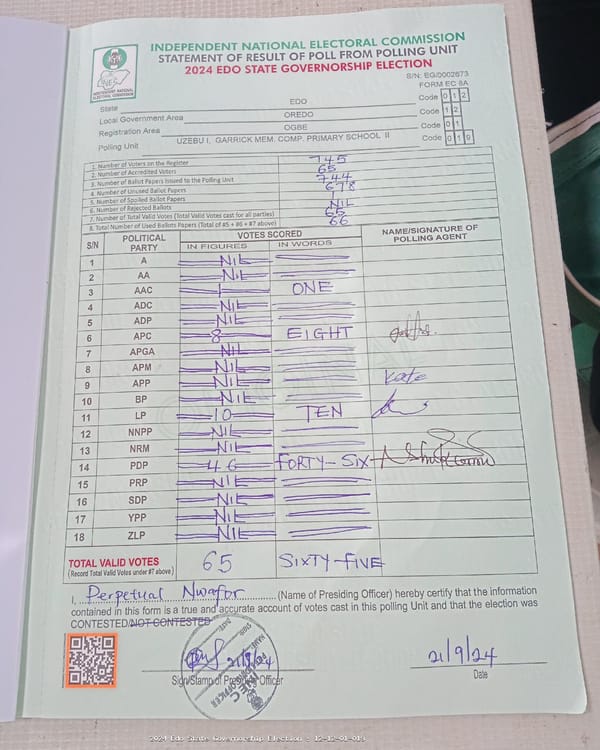 INDEPENDENT NATIONAL ELECTORAL COMMISSION
STATEMENT OF RESULT OF POLL FROM POLLING UNIT
2024 EDO STATE GOVERNORSHIP ELECTION
INEC
INDEPENDENT NATIONAL ELECTORAL COMMISSION
S/N: EG/0002673
FORM EC 8A
State EDO Code 0 1 2
Local Government Area OREDO Code 1 2
Registration Area OGBE Code 0 1
Polling Unit UZEBU I, GARRICK MEM. COMP. PRIMARY SCHOOL II Code 0 1 9
1. Number of Voters on the Register 745
2. Number of Accredited Voters 65
3. Number of Ballot Papers Issued to the Polling Unit 744
4. Number of Unused Ballot Papers 678
5. Number of Spoiled Ballot Papers 1
6. Number of Rejected Ballots NIL
7. Number of Total Valid Votes (Total Valid Votes cast for all parties) 65
8. Total Number of Used Ballots Papers (Total of #5 + #6 + #7 above) 66
S/N POLITICAL PARTY VOTES SCORED NAME/SIGNATURE OF POLLING AGENT
IN FIGURES IN WORDS
1 A NIL
2 AA NIL
3 AAC 1 ONE
4 ADC NIL
5 ADP NIL
6 APC 8 EIGHT
7 APGA NIL
8 APM NIL
9 APP NIL Kate
10 BP NIL
11 LP 10 TEN
12 NNPP NIL
13 NRM NIL
14 PDP 46 FORTY-SIX
15 PRP NIL
16 SDP NIL
17 YPP NIL
18 ZLP NIL
TOTAL VALID VOTES 65 SIXTY-FIVE
(Record Total Valid Votes under #7 above)
I, Perpetual Nwafor (Name of Presiding Officer) hereby certify that the information
contained in this form is a true and accurate account of votes cast in this polling Unit and that the election was
CONTESTED/NOT CONTESTED
21/9/24 21/9/24
Sign/Stamp of Presiding Officer Date
2024 Edo State Governorship Election : 12-12-01-019